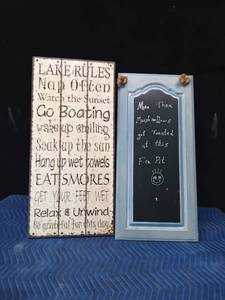 LAKE RULES
Nap Often
Watch the Sunset
Go Boating
wake up smiling
Soak up the sun
Hang up wet towels
EAT SMORES
GET YOUR FEET WET
Relax & Unwind
be grateful for this day
More Then
Marshmallows
get Toasted
at this
Fire Pit